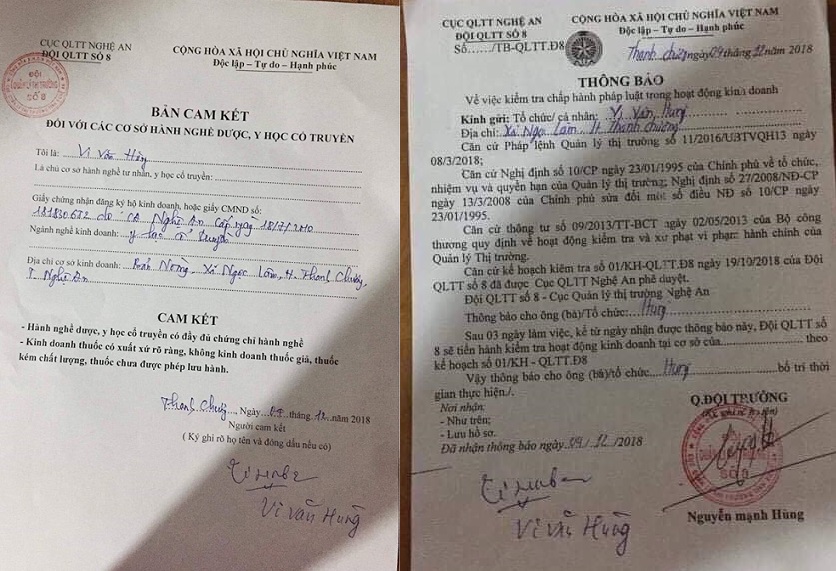 CỤC QLTT NGHỆ AN
ĐỘI QLTT SỐ 8
CỘNG HÒA XÃ HỘI CHỦ NGHĨA VIỆT NAM
Độc lập - Tự do - Hạnh phúc
ĐỘI
QUẢN LÝ THỊ TRƯỜNG
SỐ 8
BẢN CAM KẾT
ĐỐI VỚI CÁC CƠ SỞ HÀNH NGHỀ DƯỢC, Y HỌC CỔ TRUYỀN
Tôi là: Vi Văn Hùng
Là chủ cơ sở hành nghề tư nhân, y học cổ truyền:
Giấy chứng nhận đăng ký hộ kinh doanh, hoặc giấy CMND số:
181830672 do CA Nghệ An cấp ngày 18/7/2010
Ngành nghề kinh doanh: y học cổ truyền
Địa chỉ cơ sở kinh doanh: Bản Nòng, Xã Ngọc Lâm, H. Thanh Chương,
T. Nghệ An
CAM KẾT
- Hành nghề dược, y học cổ truyền có đầy đủ chứng chỉ hành nghề
- Kinh doanh thuốc có xuất xứ rõ ràng, không kinh doanh thuốc giả, thuốc
kém chất lượng, thuốc chưa được phép lưu hành.
Thanh Chương, Ngày tháng 12 năm 2018
Người cam kết
( Ký ghi rõ họ tên và đóng dấu nếu có)
Vi Văn Hùng
CỤC QLTT NGHỆ AN
ĐỘI QLTT SỐ 8
Số....../TB-QLTT.Đ8
CỘNG HÒA XÃ HỘI CHỦ NGHĨA VIỆT NAM
Độc lập - Tự do - Hạnh phúc
Thanh Chương ngày 09 tháng 12 năm 2018
THÔNG BÁO
Về việc kiểm tra chấp hành pháp luật trong hoạt động kinh doanh
Kính gửi: Tổ chức/ cá nhân: Vi Văn Hùng
Địa chỉ: Xã Ngọc Lâm, H Thanh Chương
Căn cứ Pháp lệnh Quản lý thị trường số 11/2016/UBTVQH13 ngày
08/3/2018;
Căn cứ Nghị định số 10/CP ngày 23/01/1995 của Chính phủ về tổ chức,
nhiệm vụ và quyền hạn của Quản lý thị trường; Nghị định số 27/2008/NĐ-CP
ngày 13/3/2008 của Chính phủ sửa đổi một số điều NĐ số 10/CP ngày
23/01/1995.
Căn cứ thông tư số 09/2013/TT-BCT ngày 02/05/2013 của Bộ công
thương quy định về hoạt động kiểm tra và xử phạt vi phạm hành chính của
Quản lý Thị trường.
Căn cứ kế hoạch kiểm tra số 01/KH-QLTT.Đ8 ngày 19/10/2018 của Đội
QLTT số 8 đã được Cục QLTT Nghệ An phê duyệt.
Đội QLTT số 8 - Cục Quản lý thị trường Nghệ An
Thông báo cho ông (bà)/Tổ chức: Hùng
Sau 03 ngày làm việc, kể từ ngày nhận được thông báo này, Đội QLTT số
8 sẽ tiến hành kiểm tra hoạt động kinh doanh tại cơ sở của.................... theo
kế hoạch số 01/KH - QLTT.Đ8
Vậy thông báo cho ông (bà)/tổ chức Hùng bố trí thời
gian thực hiện./.
Nơi nhận:
- Như trên;
- Lưu hồ sơ.
Đã nhận thông báo ngày 09/12/2018
Q.ĐỘI TRƯỞNG
ĐỘI
QUẢN LÝ THỊ TRƯỜNG
SỐ 8
Nguyễn mạnh Hùng
Vi Văn Hùng